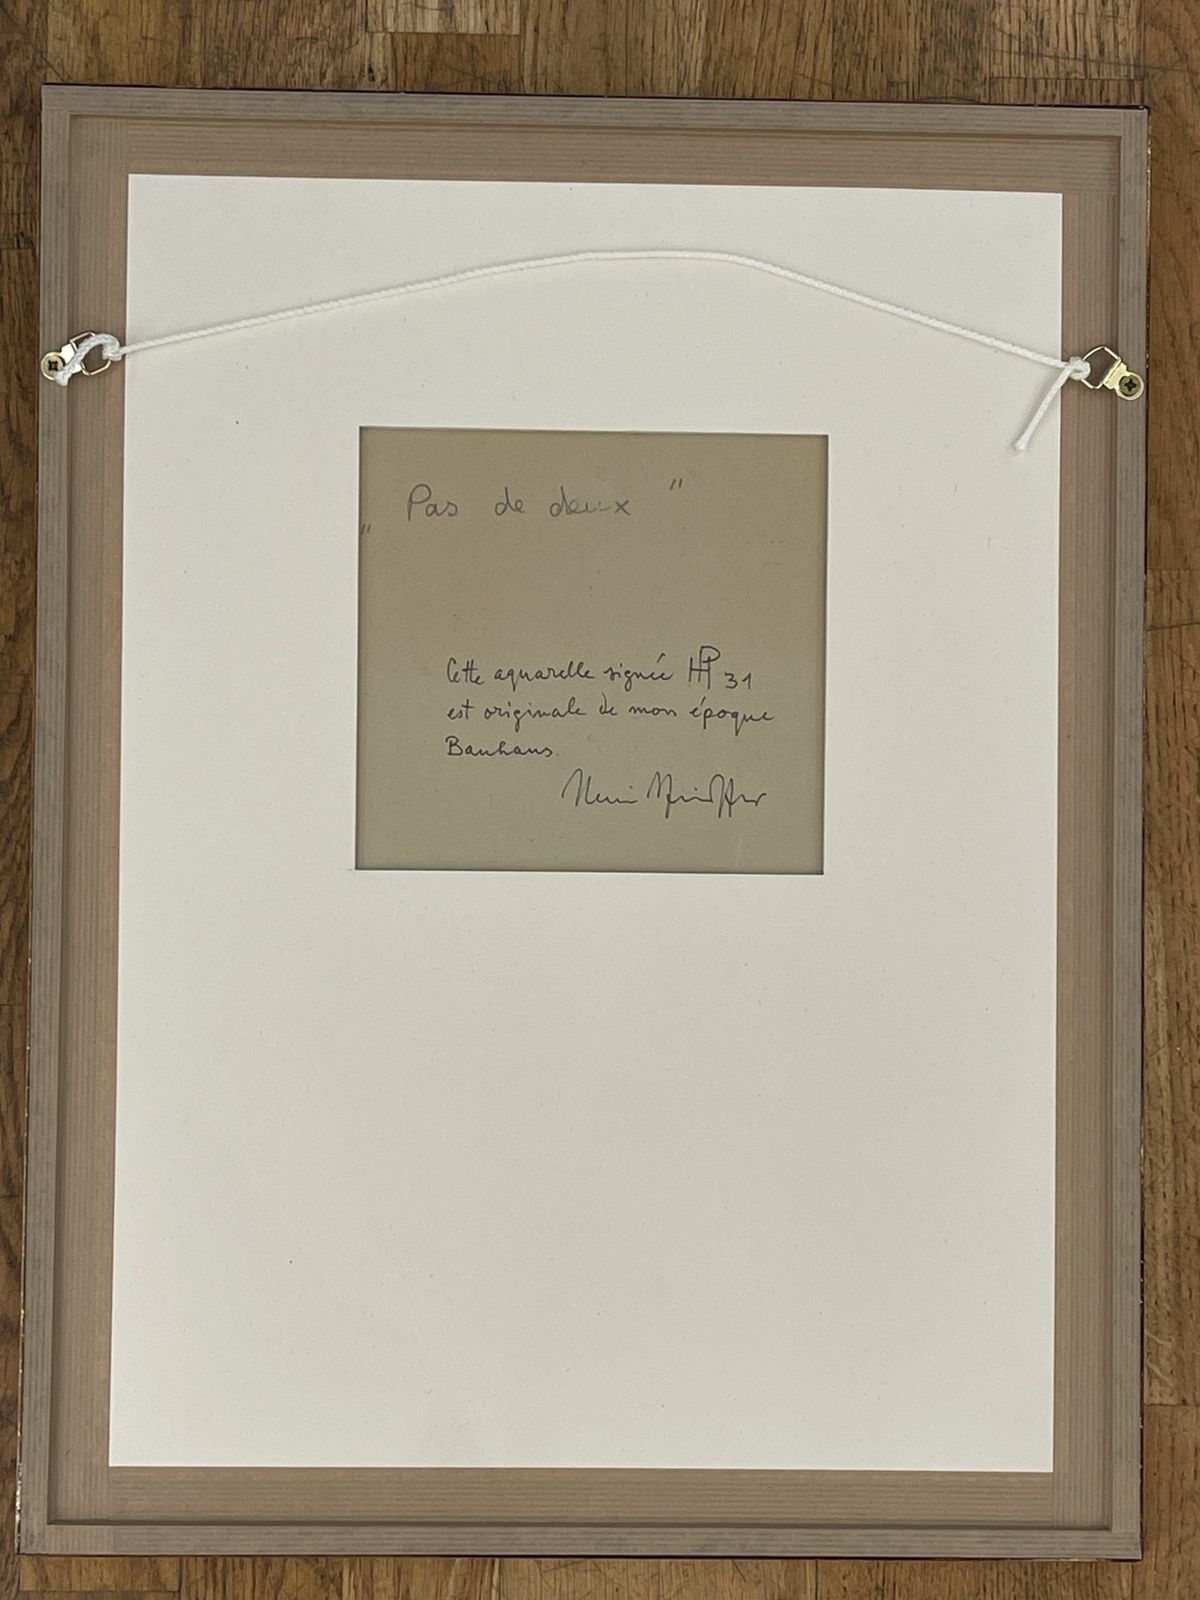 „Pas de deux"
Cette aquarelle signée HP 31
est originale de mon époque
Bauhaus.
Henri Pfeiffer